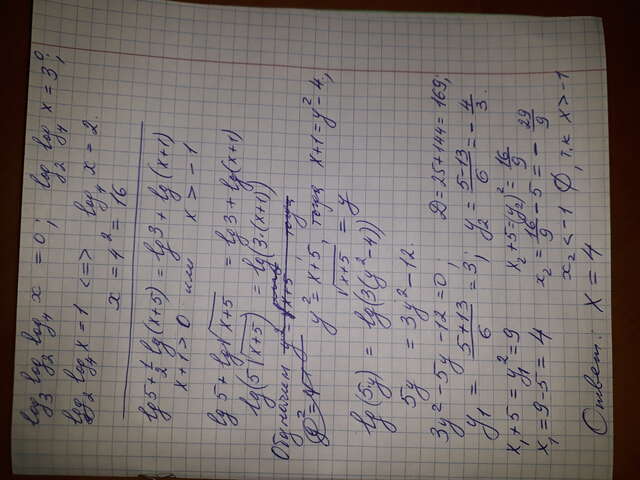 log₃ log₂ log₄ x = 0; log₂ log₄ x = 3⁰;
log₂ log₄ x = 1 <=> log₄ x = 2.
x = 4² = 16
lg 5 + 1/2 lg(x+5) = lg 3 + lg(x+1)
x+1 > 0 или x > -1
lg 5 + lg √(x+5) = lg 3 + lg(x+1)
lg(5√(x+5)) = lg(3·(x+1))
Обозначим y = √(x+5), тогда
y² = x+5, тогда x+1 = y²-4;
√(x+5) = y
lg(5y) = lg(3(y²-4))
5y = 3y²-12.
3y²-5y-12=0; D=25+144=169;
y₁ = (5+13)/6 = 3; y₂ = (5-13)/6 = -4/3.
x₁+5 = y₁² = 9 x₂+5=(y₂)² = 16/9
x₁ = 9-5 = 4 x₂ = 16/9 - 5 = -29/9
x₂ < -1 ∅, т.к x > -1
Ответ: x = 4